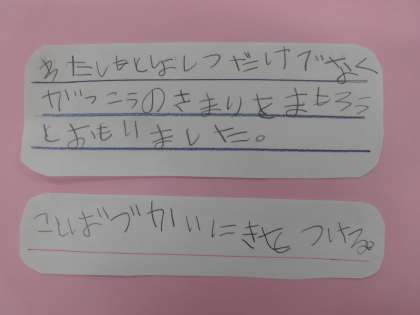 わたしもとしょしつだけでなく
がっこうのきまりをまもろう
とおもいました。
ことばづかいにきをつける。